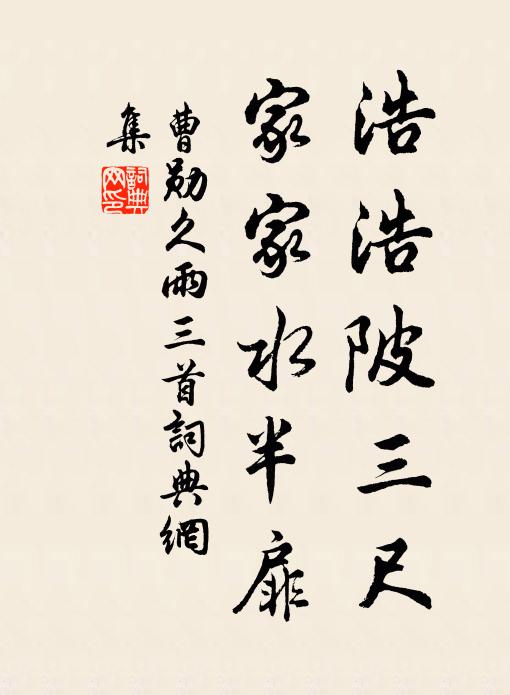 浩浩陂三尺
家家水半扉
曹勛久雨三首詞典網
集
詞典网印